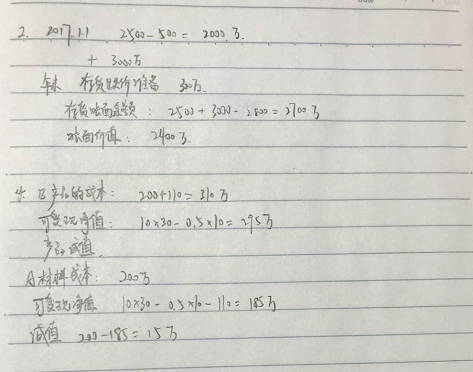 2. 2017.1.1 2500-500=2000万.
+ 3000万
年末 存货跌价准备 300万.
存货账面总额: 2500+3000-2800=2700万
账面价值: 2400万.
4. B产品的成本: 200+110=310万
可变现净值: 10×30-0.5×10=295万
产品减值
A材料成本: 200万
可变现净值 10×30-0.5×10-110=185万
减值 200-185=15万